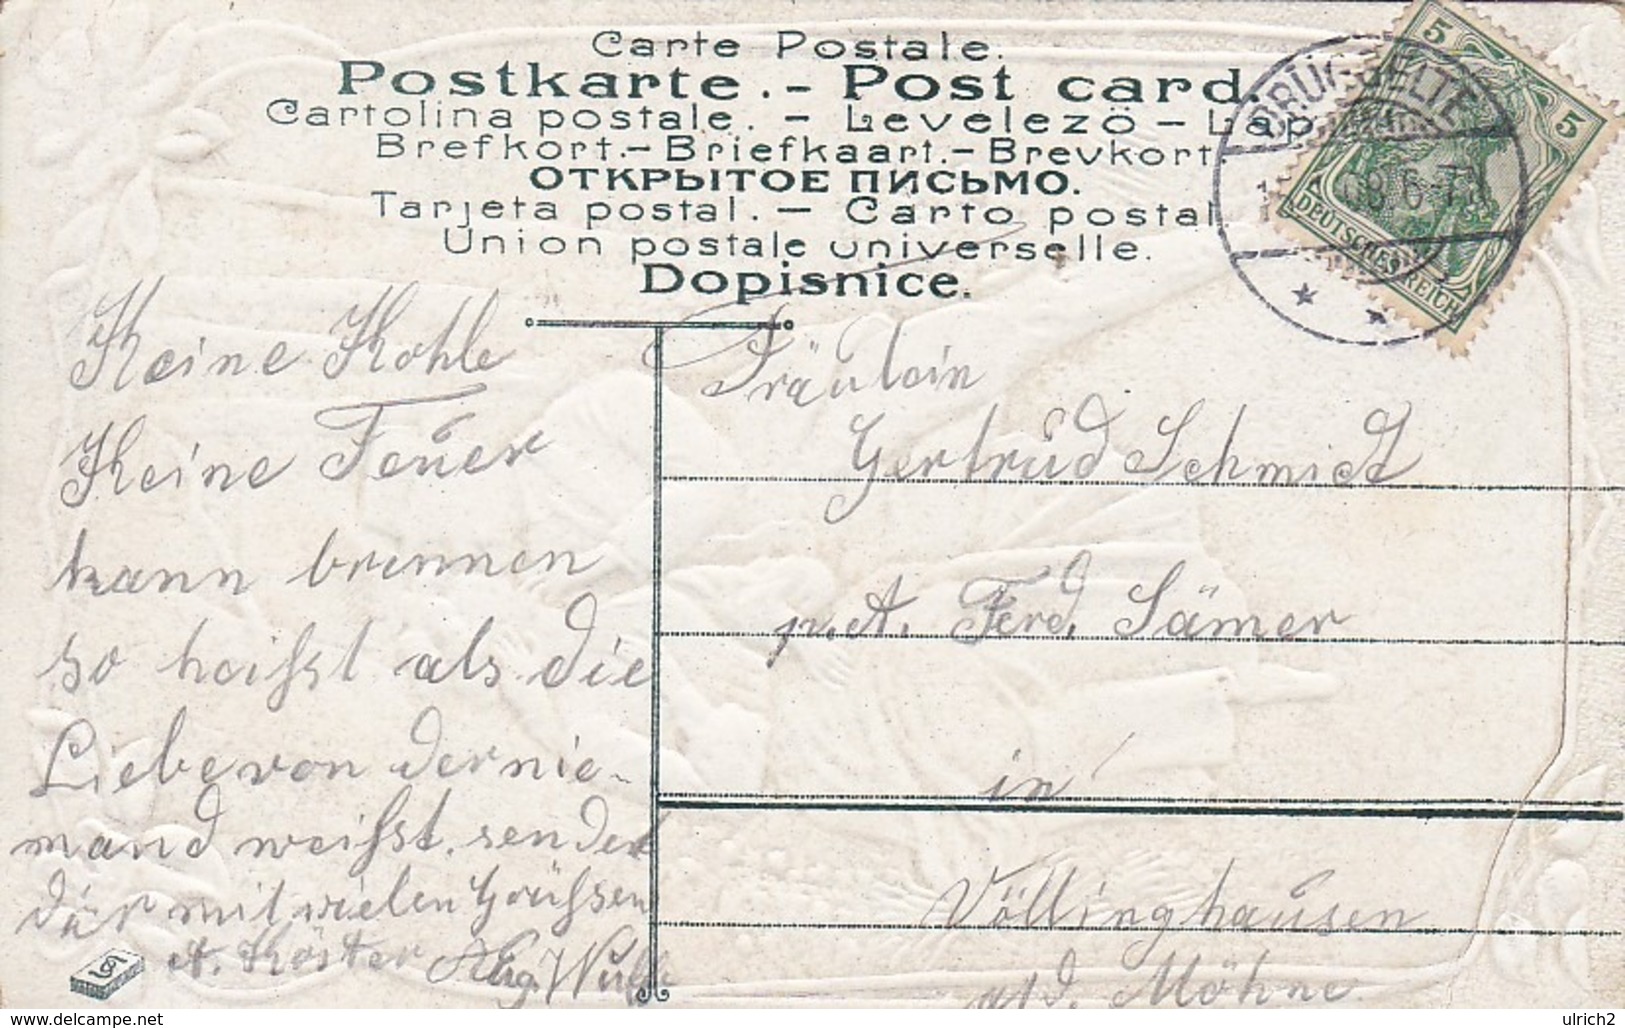 Carte Postale.
Postkarte. - Post card.
Cartolina postale. - Levelezö - Lap
Brefkort. - Briefkaart. - Brevkort.
ОТКРЫТОЕ ПИСЬМО.
Tarjeta postal. - Carto postal
Union postale universelle.
Dopisnice.
5
5
DEUTSCHES REICH
DRÜGGELTE
08.6-7
Keine Kohle
Keine Feuer
kann brennen
so heißt als die
Liebe von der nie-
mand weißt. sendet
dir mit vielen Grüßsen
A. Köster Aug. Wulf
Fräulein
Gertrud Schmidt
p.A. Ferd. Sämer
in
Völlinghausen
a/d. Möhne
www.delcampe.net
ulrich2